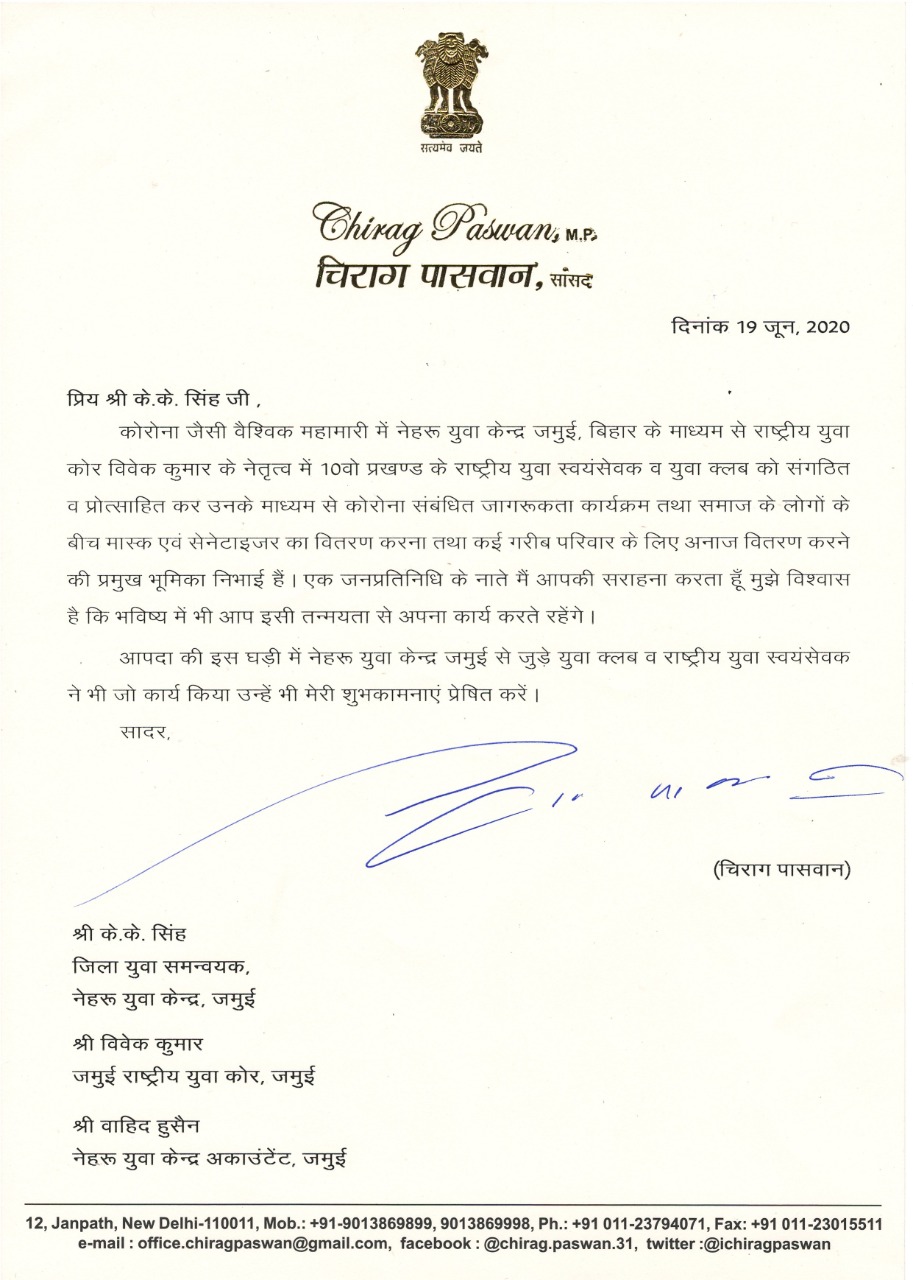 सत्यमेव जयते
Chirag Paswan, M.P.
चिराग पासवान, सांसद
दिनांक 19 जून, 2020
प्रिय श्री के.के. सिंह जी ,
कोरोना जैसी वैश्विक महामारी में नेहरू युवा केन्द्र जमुई, बिहार के माध्यम से राष्ट्रीय युवा
कोर विवेक कुमार के नेतृत्व में 10वो प्रखण्ड के राष्ट्रीय युवा स्वयंसेवक व युवा क्लब को संगठित
व प्रोत्साहित कर उनके माध्यम से कोरोना संबंधित जागरूकता कार्यक्रम तथा समाज के लोगों के
बीच मास्क एवं सेनेटाइजर का वितरण करना तथा कई गरीब परिवार के लिए अनाज वितरण करने
की प्रमुख भूमिका निभाई हैं । एक जनप्रतिनिधि के नाते मैं आपकी सराहना करता हूँ मुझे विश्वास
है कि भविष्य में भी आप इसी तन्मयता से अपना कार्य करते रहेंगे ।
आपदा की इस घड़ी में नेहरू युवा केन्द्र जमुई से जुड़े युवा क्लब व राष्ट्रीय युवा स्वयंसेवक
ने भी जो कार्य किया उन्हें भी मेरी शुभकामनाएं प्रेषित करें ।
सादर,
(चिराग पासवान)
श्री के.के. सिंह
जिला युवा समन्वयक,
नेहरू युवा केन्द्र, जमुई
श्री विवेक कुमार
जमुई राष्ट्रीय युवा कोर, जमुई
श्री वाहिद हुसैन
नेहरू युवा केन्द्र अकाउंटेंट, जमुई
12, Janpath, New Delhi-110011, Mob.: +91-9013869899, 9013869998, Ph.: +91 011-23794071, Fax: +91 011-23015511
e-mail : office.chiragpaswan@gmail.com, facebook : @chirag.paswan.31, twitter :@ichiragpaswan